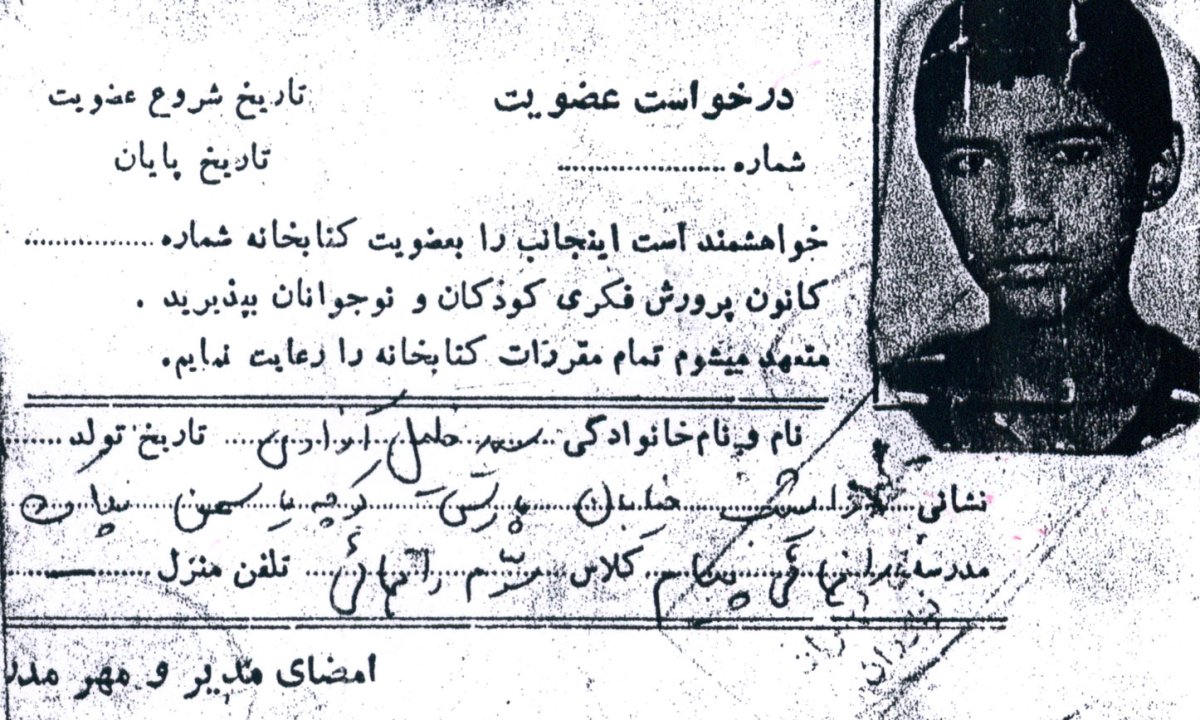 درخواست عضویت
تاریخ شروع عضویت
شماره ....................
تاریخ پایان
خواهشمند است اینجانب را بعضویت کتابخانه شماره ................
کانون پرورش فکری کودکان و نوجوانان بپذیرید .
متعهد میشوم تمام مقررات کتابخانه را رعایت نمایم.
نام و نام خانوادگی سید خلیل تاریخ تولد .......
نشانی خیابان پارس کوچه یاسمن
مدرسه کلاس راهنمائی تلفن منزل
امضای مدیر و مهر مدر